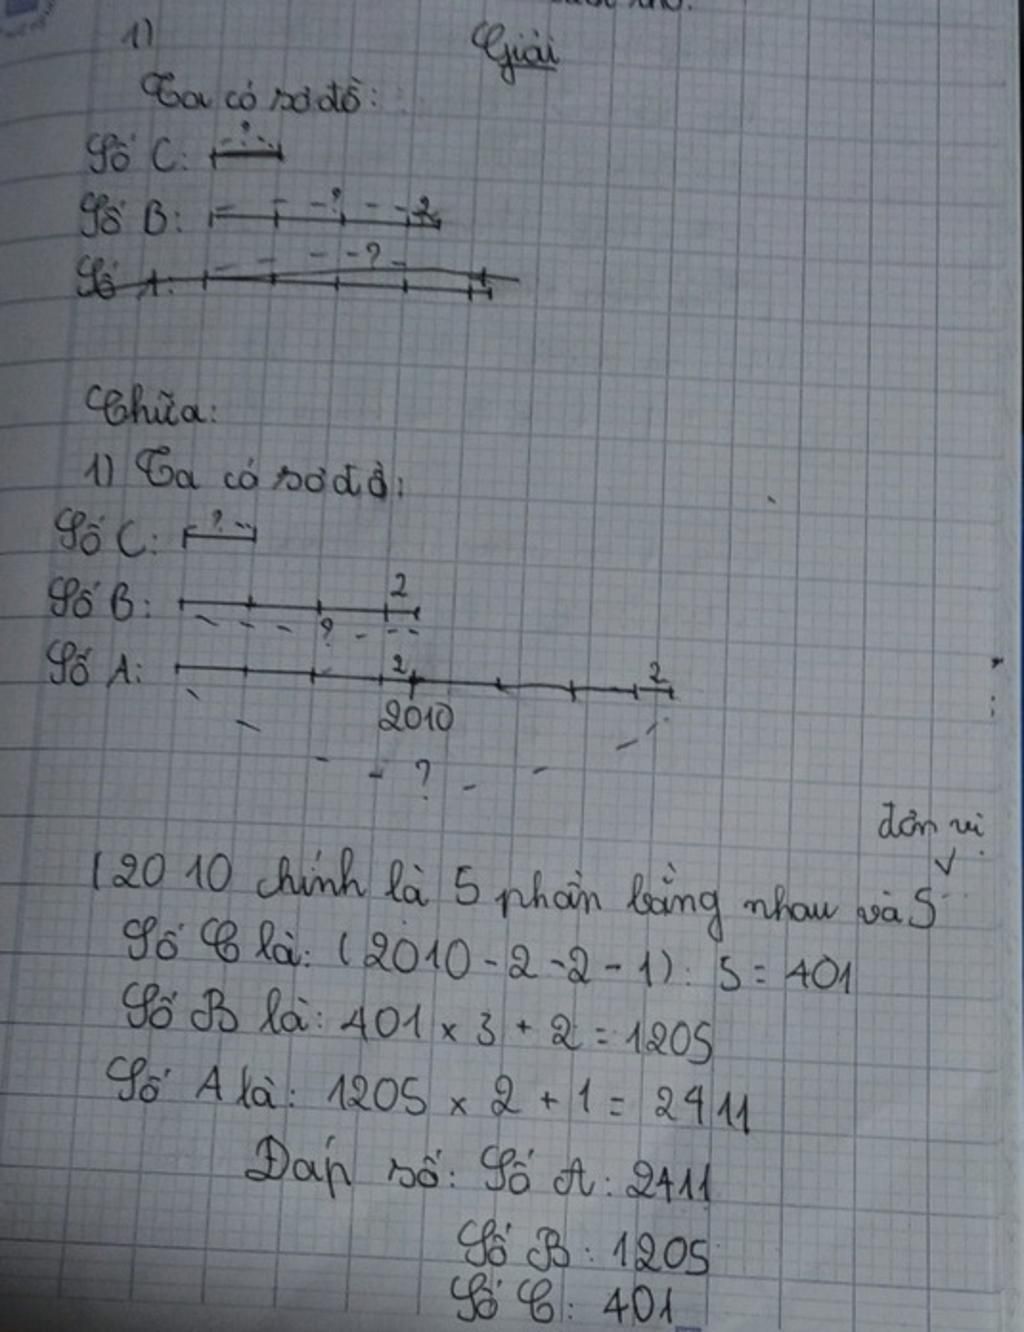 1) Giải
Ta có sơ đồ:
Số C: ?
Số B: ? 2
Số A: ?
Chữa:
1) Ta có sơ đồ:
Số C: ?
Số B: 2
?
Số A: 2 2
2010
?
đơn vị
(2010 chính là 5 phần bằng nhau và 5
Số C là: (2010 - 2 - 2 - 1) : 5 = 401
Số B là: 401 x 3 + 2 = 1205
Số A là: 1205 x 2 + 1 = 2411
Đáp số: Số A: 2411
Số B: 1205
Số C: 401